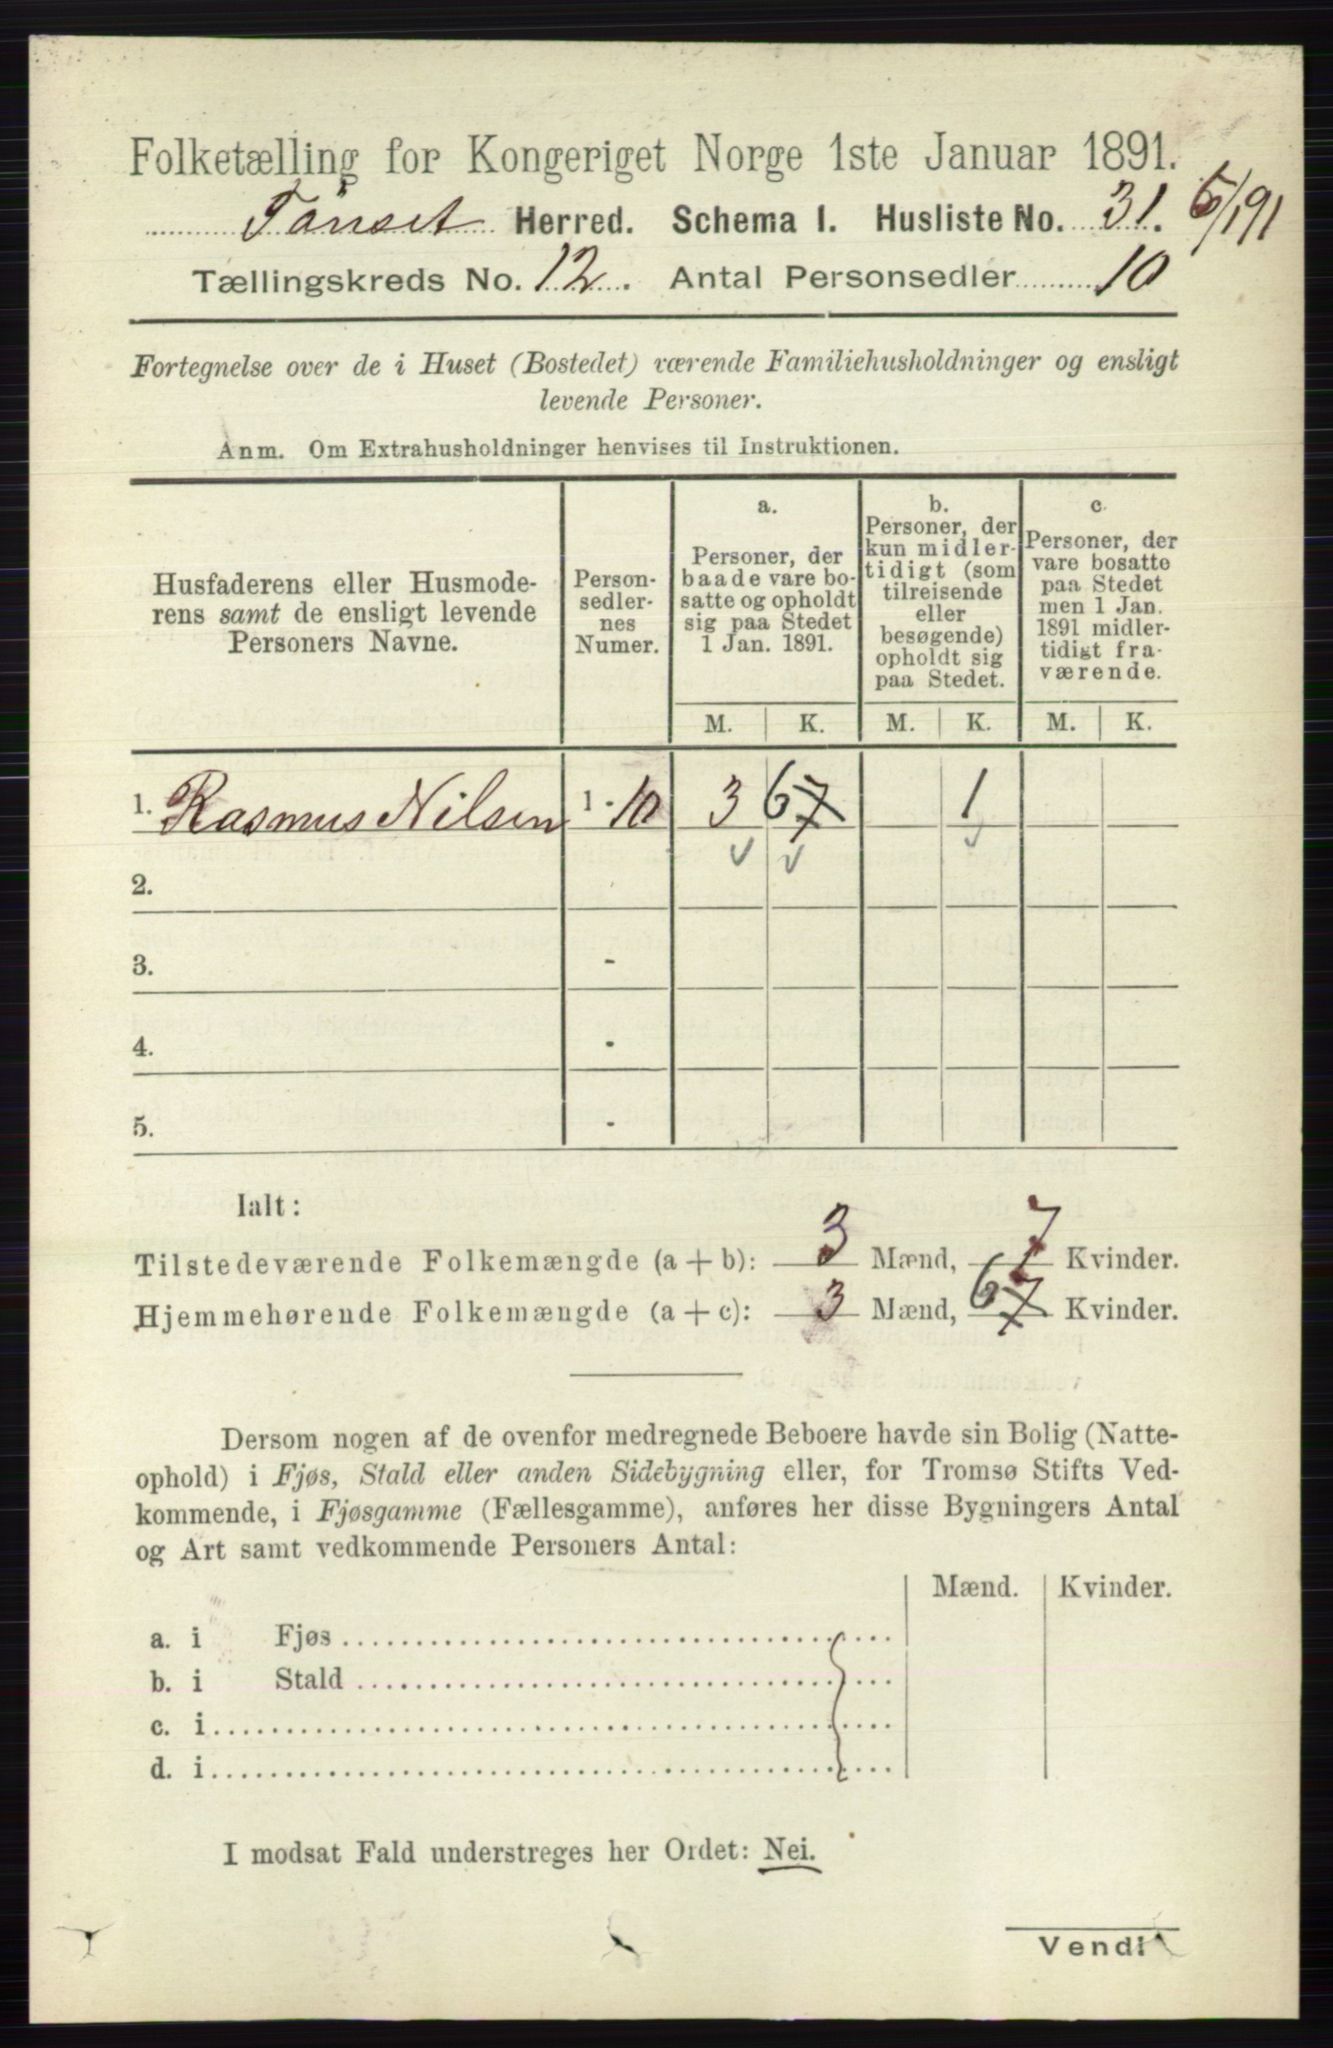 Folketælling for Kongeriget Norge 1ste Januar 1891.
Tönset Herred. Schema 1. Husliste No. 31.
Tællingskreds No. 12. Antal Personsedler 10
Fortegnelse over de i Huset (Bostedet) værende Familiehusholdninger og ensligt
levende Personer.
Anm. Om Extrahusholdninger henvises til Instruktionen.
Husfaderens eller Husmode-
rens samt de ensligt levende
Personers Navne.
Person-
sedler-
nes
Numer.
a.
Personer, der
baade vare bo-
satte og opholdt
sig paa Stedet
1 Jan. 1891.
b.
Personer, der
kun midler-
tidigt (som
tilreisende
eller
besøgende)
opholdt sig
paa Stedet.
c.
Personer, der
vare bosatte
paa Stedet
men 1 Jan.
1891 midler-
tidigt fra-
værende.
M. K. M. K. M. K.
1. Rasmus Nilsen 1 - 10 3 6 7 1
2.
3. -
4. -
5. -
Ialt:
Tilstedeværende Folkemængde (a + b): 3 Mænd, 7 Kvinder.
Hjemmehørende Folkemængde (a + c): 3 Mænd, 6 7 Kvinder.
Dersom nogen af de ovenfor medregnede Beboere havde sin Bolig (Natte-
ophold) i Fjøs, Stald eller anden Sidebygning eller, for Tromsø Stifts Ved-
kommende, i Fjøsgamme (Fællesgamme), anføres her disse Bygningers Antal
og Art samt vedkommende Personers Antal:
Mænd. Kvinder.
a. i Fjøs
b. i Stald
c. i
d. i
I modsat Fald understreges her Ordet: Nei.
Vendi